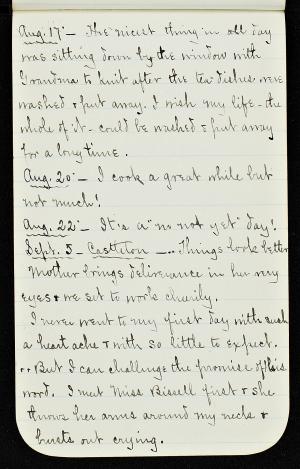 Aug. 17 - The nicest thing in all day
was sitting down by the window with
Grandma to knit after the tea dishes were
washed & put away. I wish my life - the
whole of it - could be washed & put away
for a long time.
Aug. 20 - I cook a great while but
not much!
Aug. 22 - It's a "m not yet" day!
Sept. 5 - Castleton - .. Things look better
Mother brings deliverance in her very
eyes & we set to work charily.
I never went to my first day with such
a heart ache & with so little to expect.
.. But I can challenge the promise of His
word. I met Miss Bissell first & she
throws her arms around my neck &
bursts out crying.